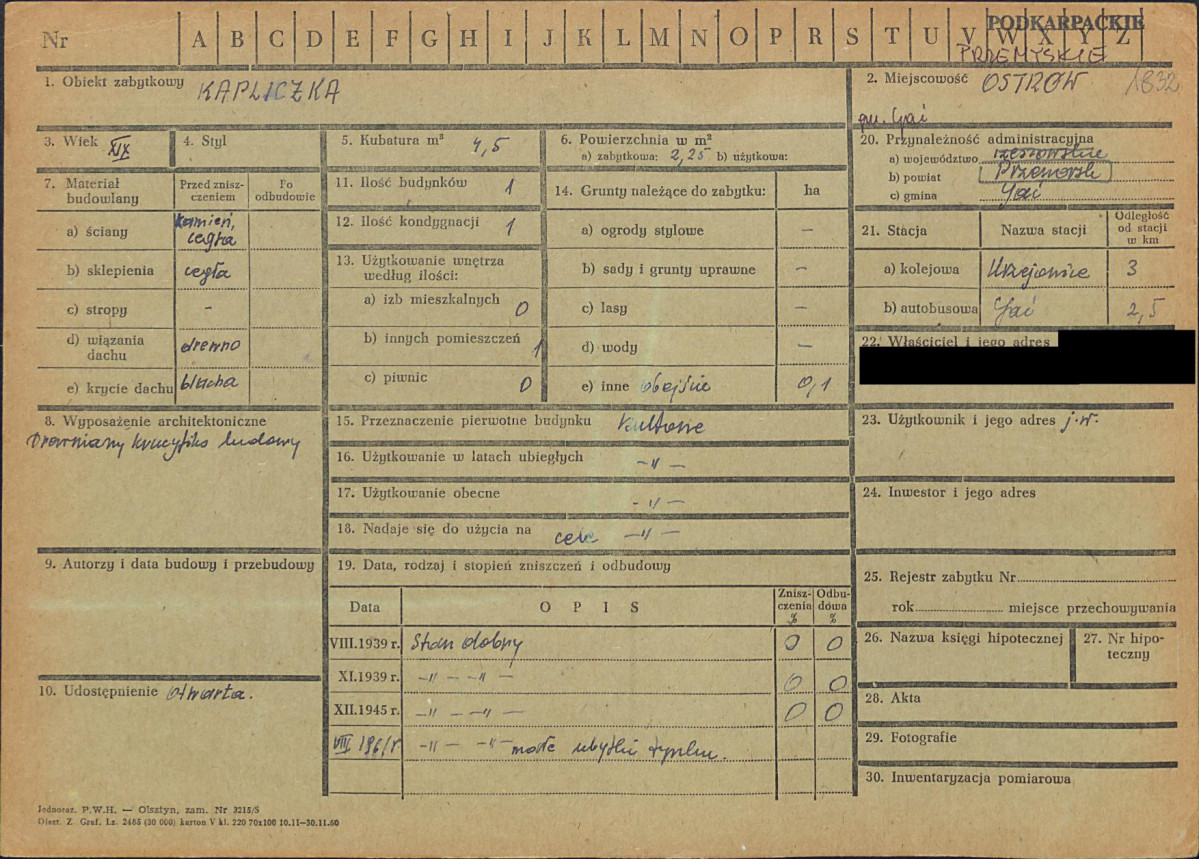 Nr A B C D E F G H I J K L M N O P R S T U V W X Y Z
PODKARPACKIE
PRZEMYSKIE
1. Obiekt zabytkowy KAPLICZKA
2. Miejscowość OSTRÓW 1832
gm. Gać
3. Wiek XIX
4. Styl
5. Kubatura m³ 4,5
6. Powierzchnia w m²
a) zabytkowa: 2,25 b) użytkowa:
20. Przynależność administracyjna
a) województwo rzeszowskie
b) powiat Przeworsk
c) gmina Gać
7. Materiał budowlany
Przed zniszczeniem
Po odbudowie
a) ściany kamień, cegła
b) sklepienia cegła
c) stropy –
d) wiązania dachu drewno
e) krycie dachu blacha
11. Ilość budynków 1
12. Ilość kondygnacji 1
13. Użytkowanie wnętrza według ilości:
a) izb mieszkalnych 0
b) innych pomieszczeń 1
c) piwnic 0
14. Grunty należące do zabytku: ha
a) ogrody stylowe –
b) sady i grunty uprawne –
c) lasy –
d) wody –
e) inne obejście 0,1
21. Stacja Nazwa stacji Odległość od stacji w km
a) kolejowa Urzejowice 3
b) autobusowa Gać 2,5
22. Właściciel i jego adres
8. Wyposażenie architektoniczne
Drewniany krucyfiks ludowy
15. Przeznaczenie pierwotne budynku kultowe
16. Użytkowanie w latach ubiegłych –„–
17. Użytkowanie obecne -„–
18. Nadaje się do użycia na cele –„–
23. Użytkownik i jego adres j.w.
24. Inwestor i jego adres
9. Autorzy i data budowy i przebudowy
19. Data, rodzaj i stopień zniszczeń i odbudowy
Data OPIS Zniszczenia % Odbudowa %
VIII.1939 r. Stan dobry 0 0
XI.1939 r. –„– –„– 0 0
XII.1945 r. –„– –„– 0 0
VIII 1961 r. –„– –„– małe ubytki tynku.
25. Rejestr zabytku Nr
rok miejsce przechowywania
26. Nazwa księgi hipotecznej
27. Nr hipoteczny
28. Akta
29. Fotografie
30. Inwentaryzacja pomiarowa
10. Udostępnienie otwarta.
Jednoraz. P.W.H. — Olsztyn, zam. Nr 3215/S
Olszt. Z. Graf. Lz. 2485 (30 000) karton V kl. 220 70x100 10.11—30.11.60